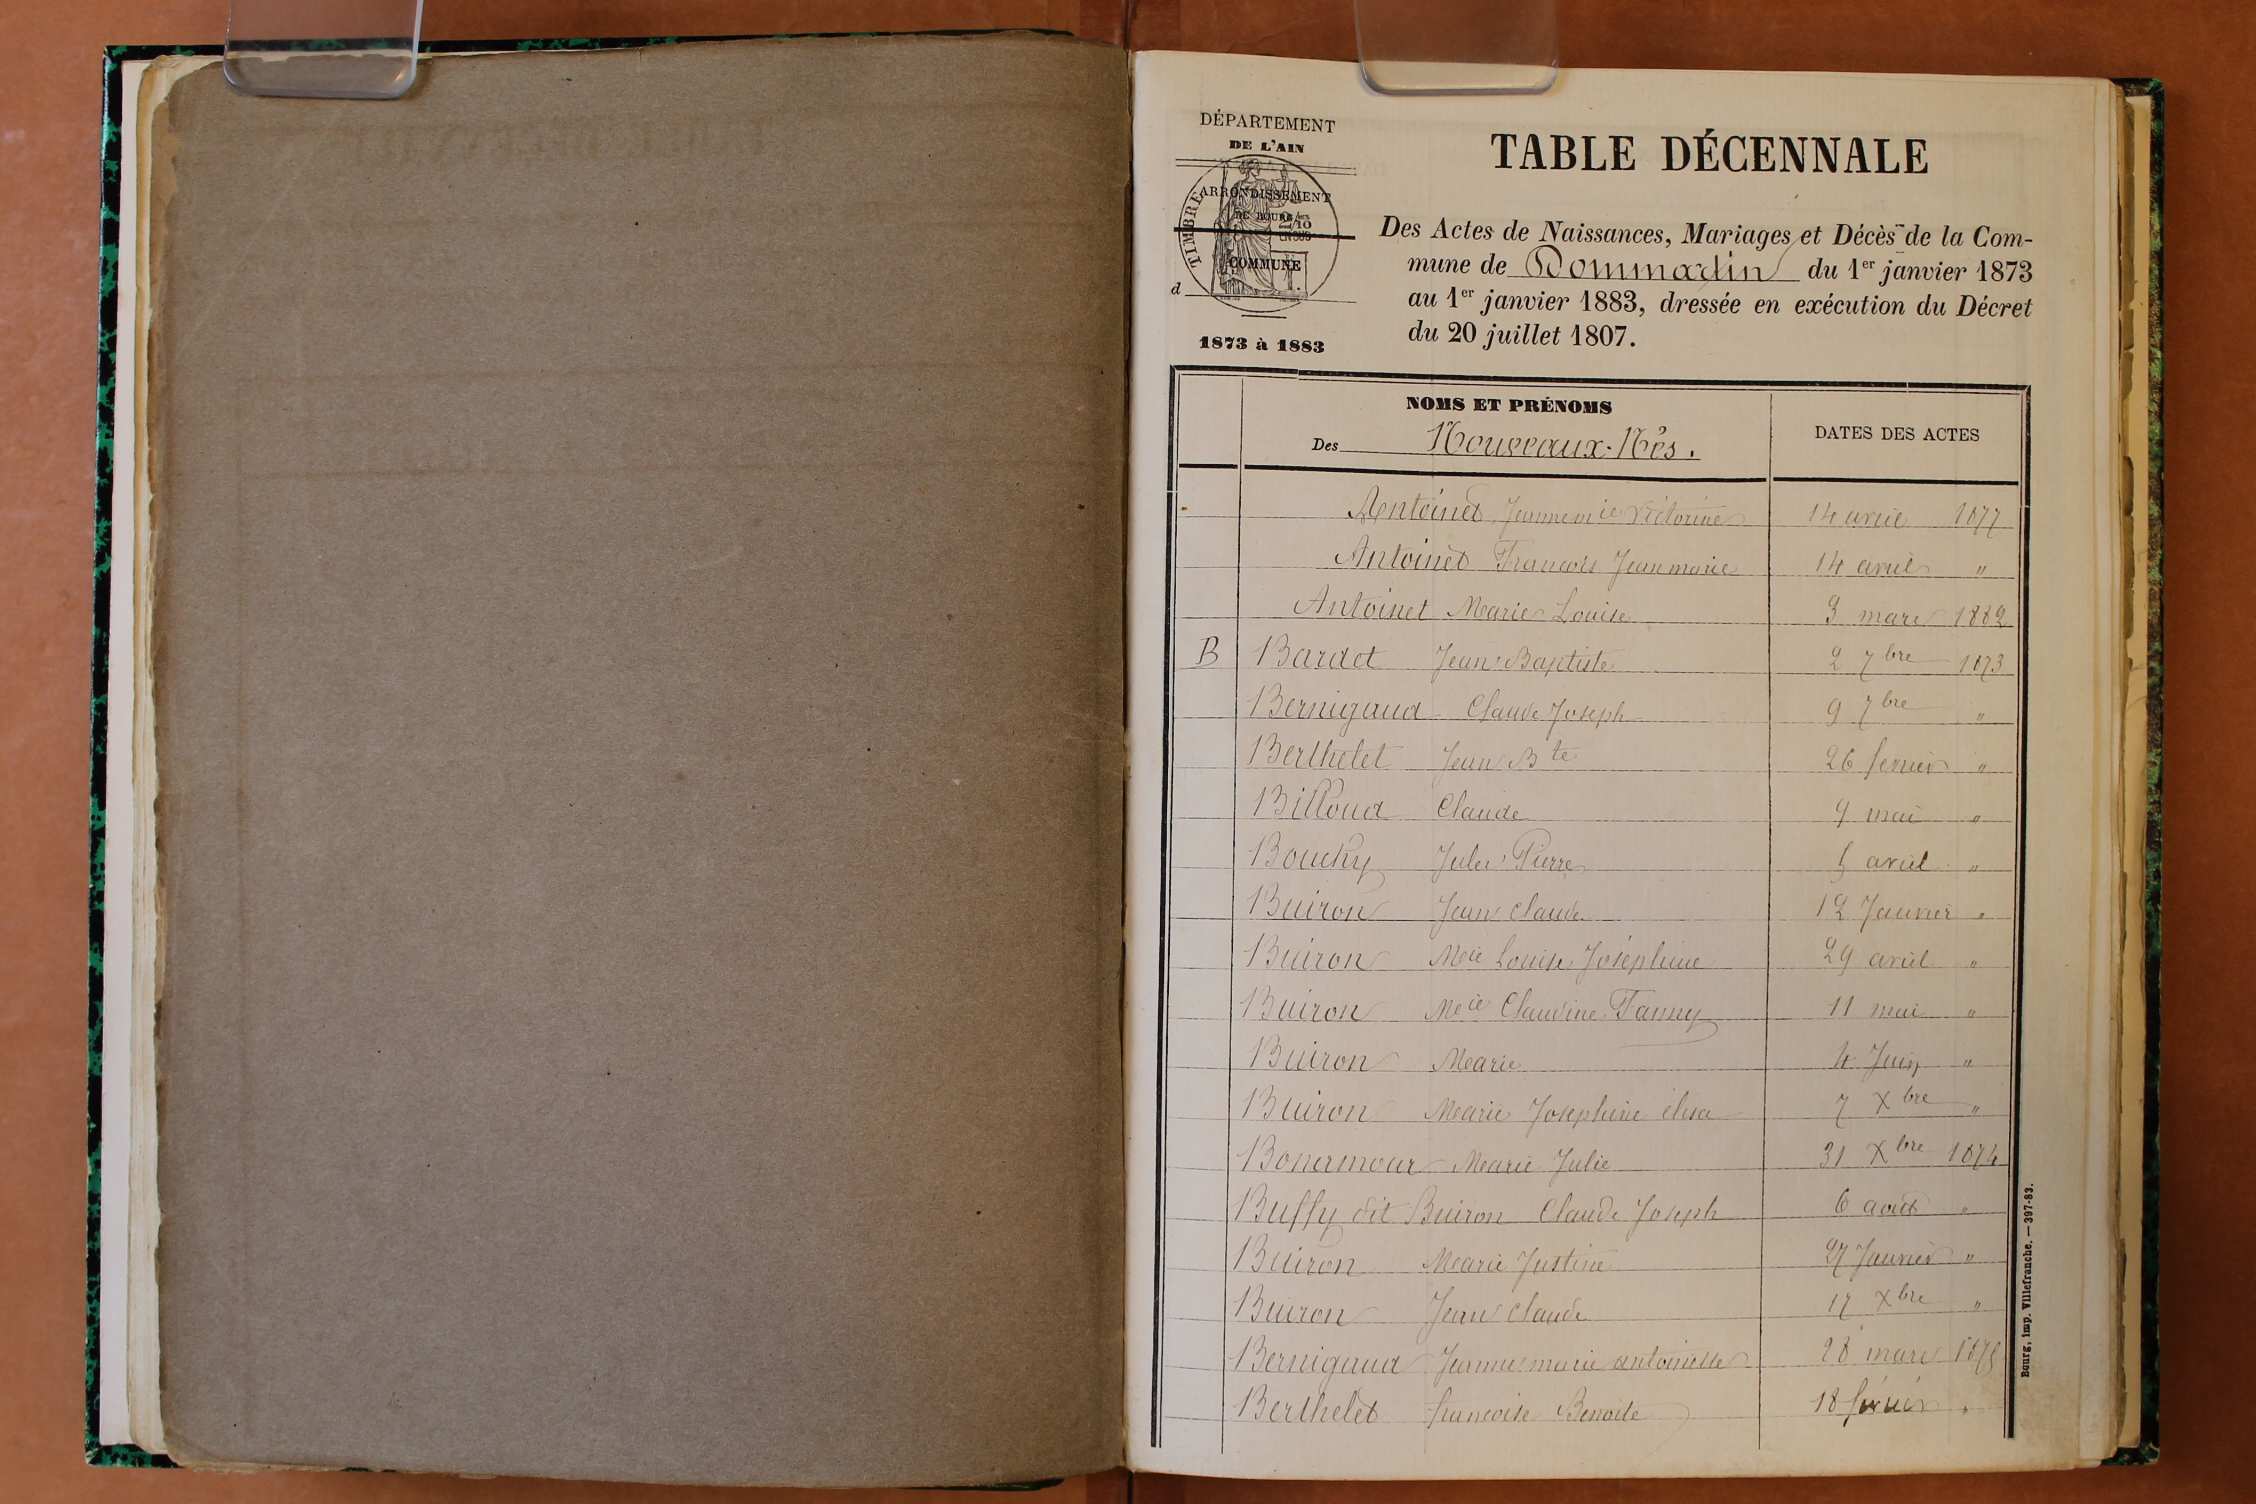 DÉPARTEMENT
DE L'AIN
ARRONDISSEMENT
DE BOURG
TIMBRE
2/10
EN SUS
COMMUNE
d
1873 à 1883
TABLE DÉCENNALE
Des Actes de Naissances, Mariages et Décès de la Com-
mune de Dommartin du 1er janvier 1873
au 1er janvier 1883, dressée en exécution du Décret
du 20 juillet 1807.
NOMS ET PRÉNOMS
Des Nouveaux-Nés.
DATES DES ACTES
Antoinet Jeanne mie Victorine 14 avril 1877
Antoinet François Jean marie 14 avril "
Antoinet Marie Louise 3 mars 1882
B Bardet Jean-Baptiste 2 7bre 1873
Bernigaud Claude Joseph 9 7bre "
Berthelet Jean Bte 26 fevrier "
Billoud Claude 9 mai "
Bouchy Jules Pierre 5 avril "
Buiron Jean Claude 12 Janvier "
Buiron Mie Louise Joséphine 29 avril "
Buiron Mie Claudine Fanny 11 mai "
Buiron Marie 4 Juin "
Buiron Marie Josephine élisa 7 Xbre "
Bonamour Marie Julie 31 Xbre 1874
Buffy dit Buiron Claude Joseph 6 août "
Buiron Marie Justine 27 Janvier "
Buiron Jean Claude 17 Xbre "
Bernigaud Jeanne marie antoinette 28 mars 1875
Berthelet françoise Benoite 18 février "
Bourg, imp. Villefranche. — 397-83.